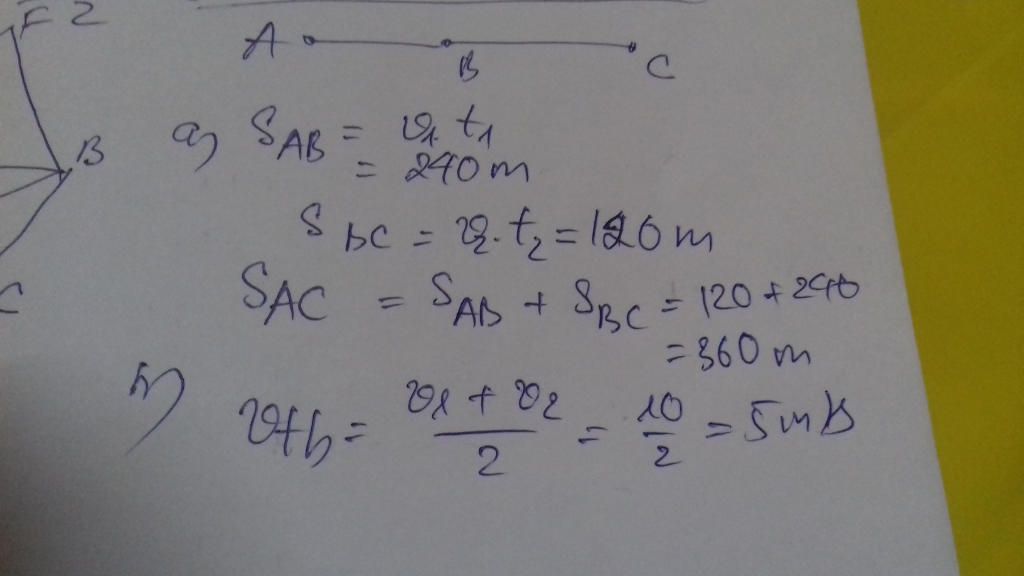 F2
A B C
B
a) S_AB = v₁ t₁
= 240 m
S_BC = v₂. t₂ = 120 m
C
S_AC = S_AB + S_BC = 120 + 240
= 360 m
b) vtb = (v₁ + v₂)/2 = 10/2 = 5 m/s